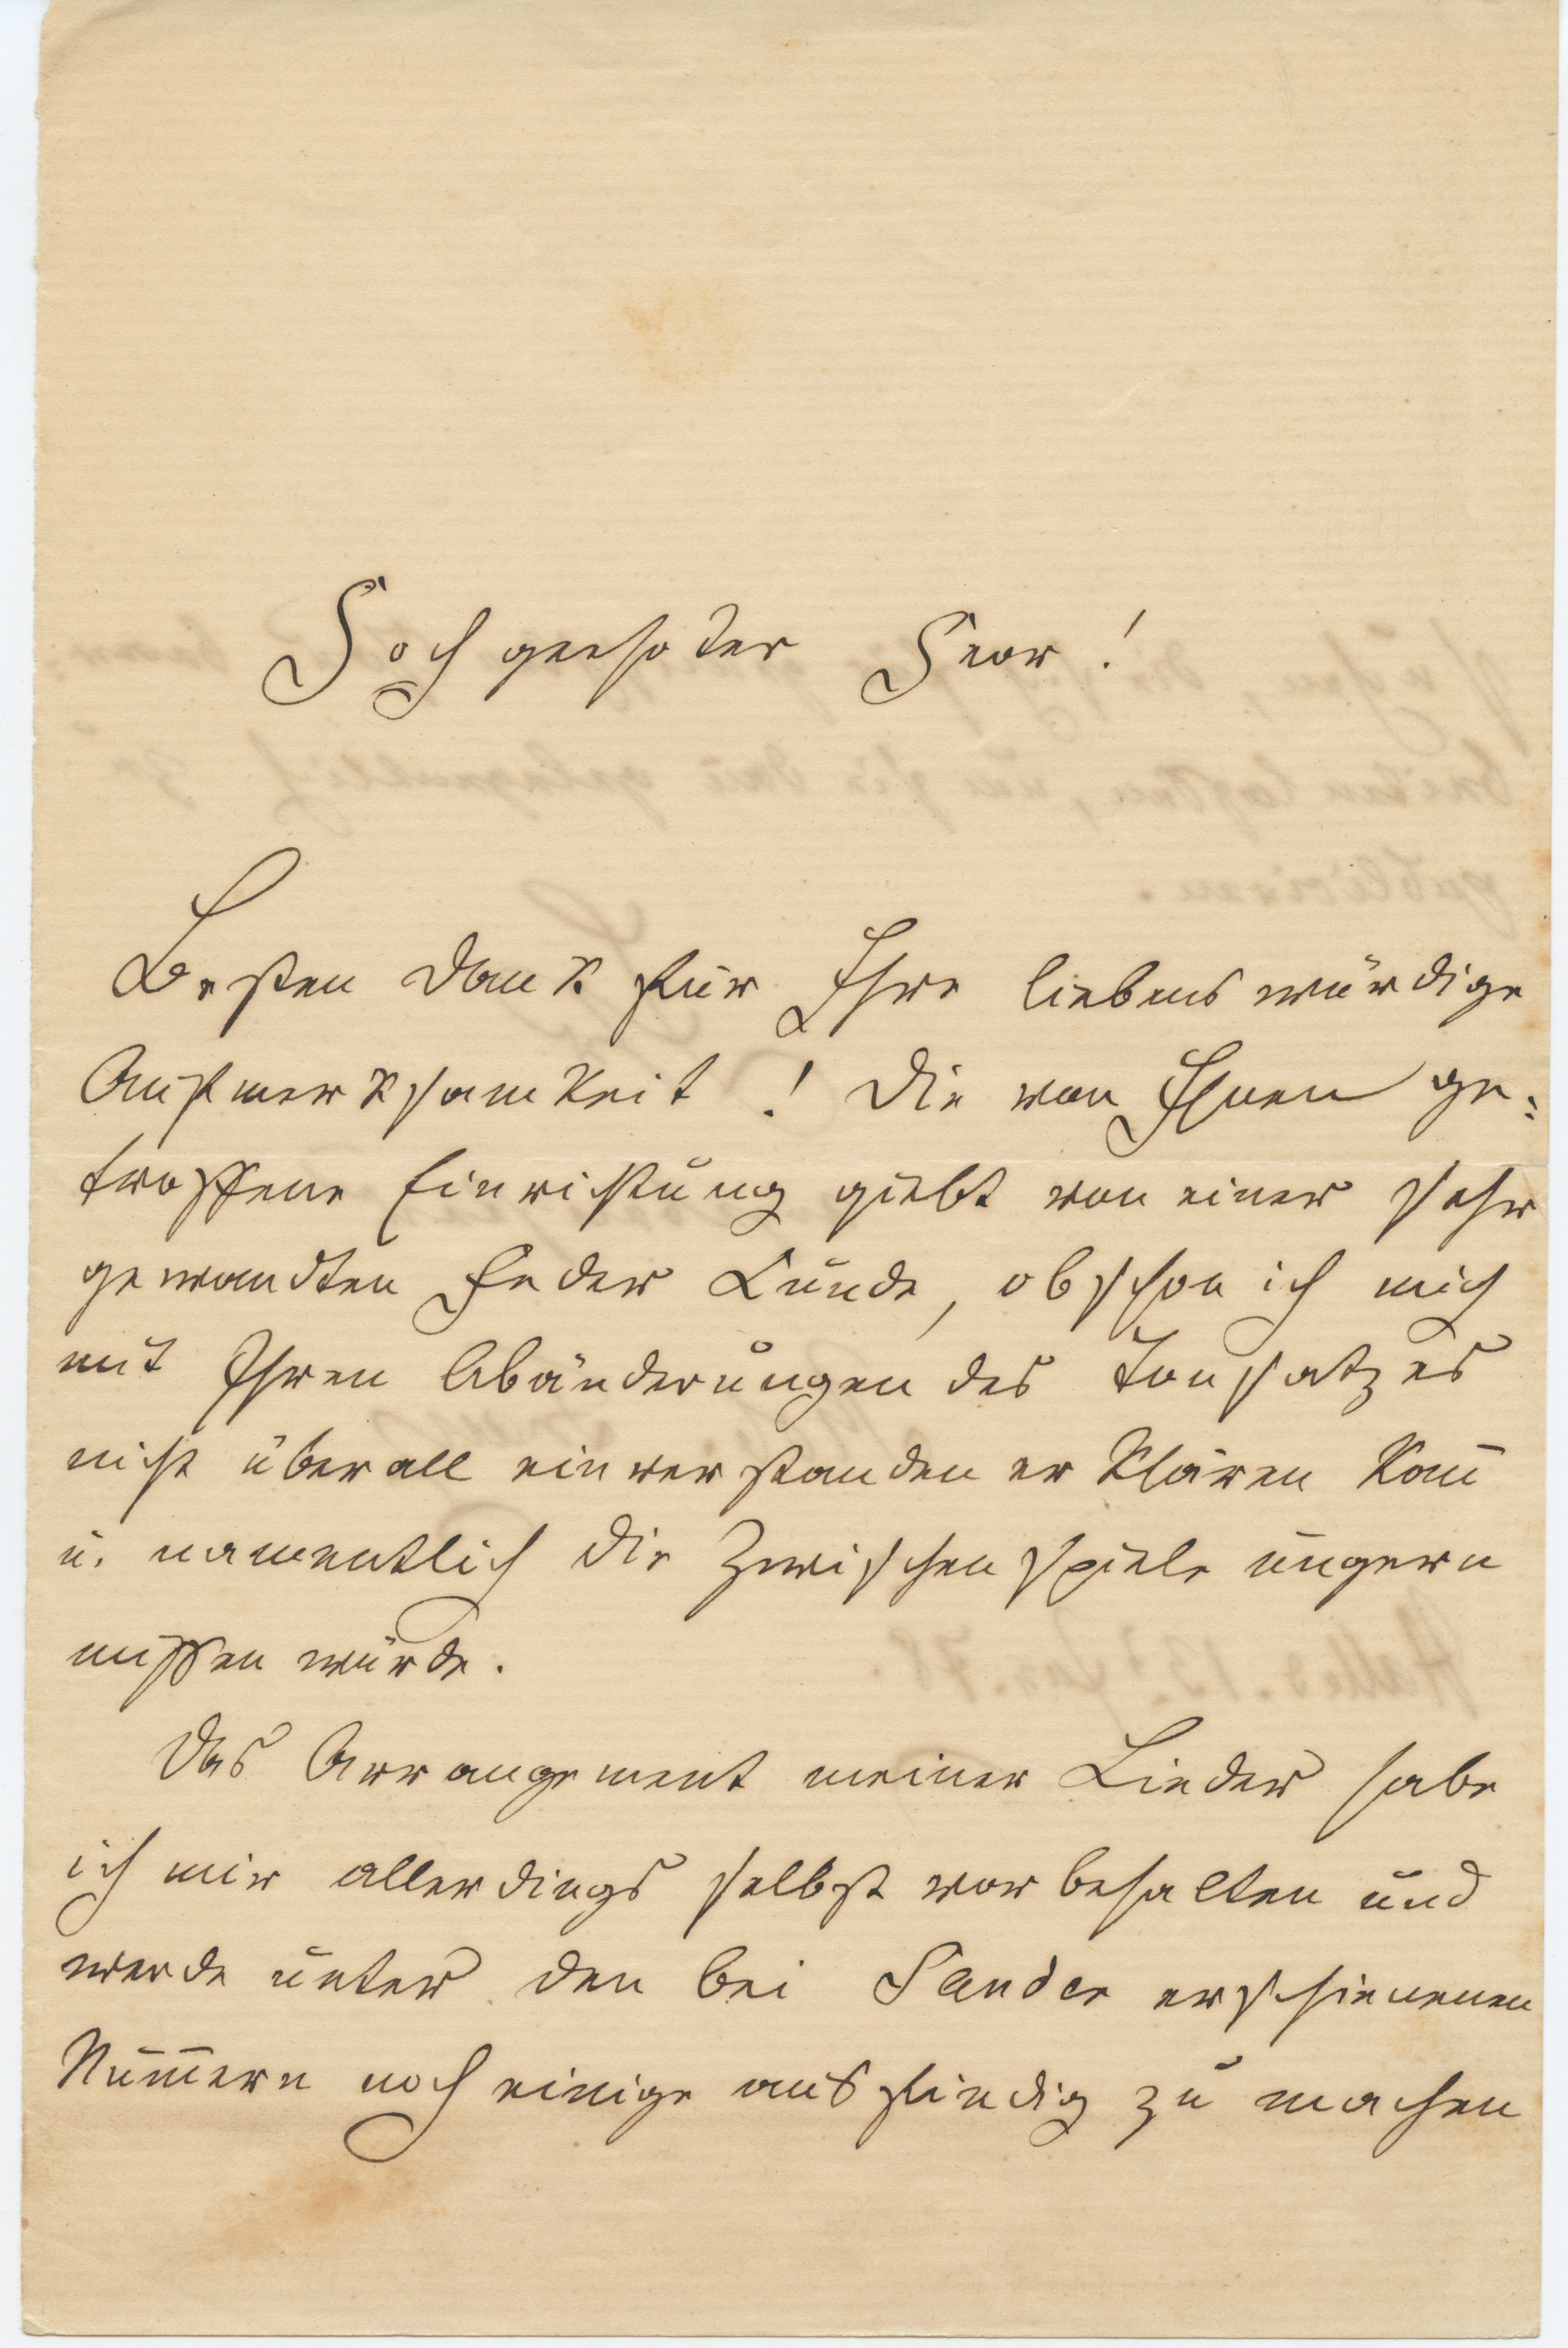 Hochgeehrter Herr!
Besten Dank für Ihre liebenswürdige
Aufmerksamkeit! Die von Ihnen ge:
troffene Einrichtung giebt von einer sehr
gewandten Feder Kunde, obschon ich mich
mit Ihren Abänderungen des Tonsatzes
nicht überall einverstanden erklären kan̄
u. namentlich die Zwischenspiele ungern
missen würde.
Das Arrangement meiner Lieder habe
ich mir allerdings selbst vorbehalten und
werde unter den bei Sander erschienenen
Num̄ern noch einige ausfindig zu machen